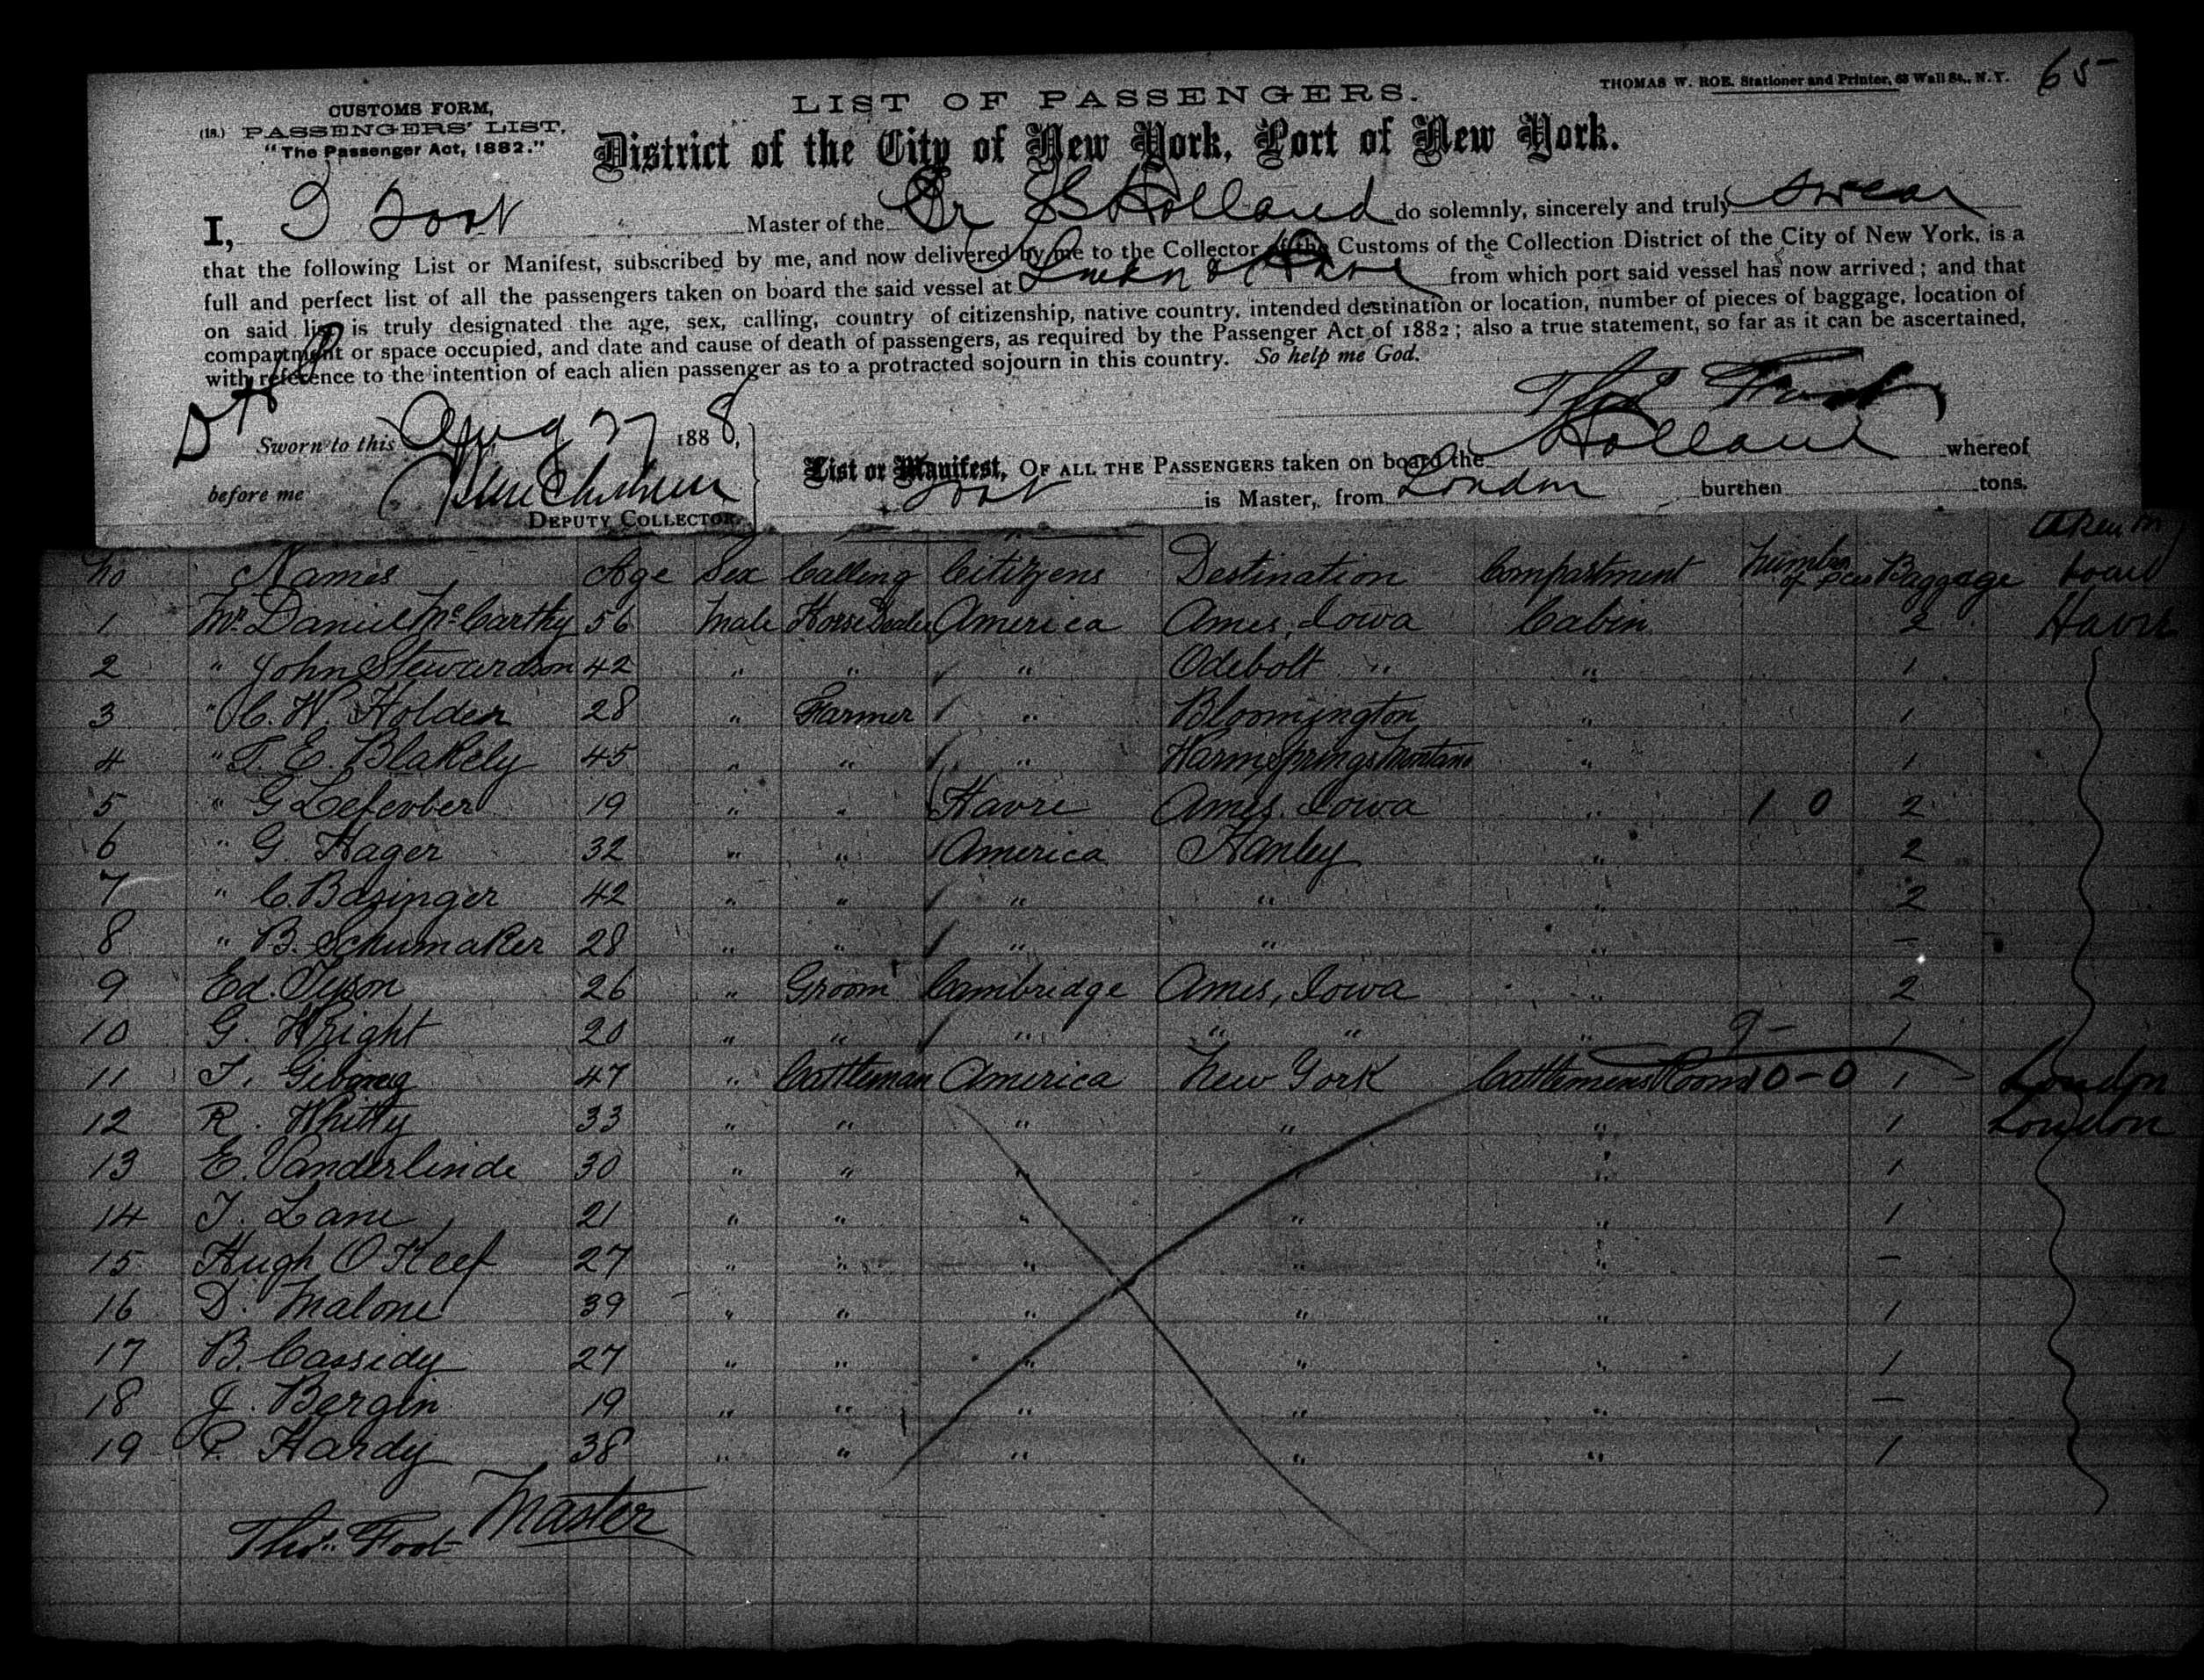 65
THOMAS W. ROE, Stationer and Printer, 63 Wall St., N.Y.
CUSTOMS FORM,
(18.) PASSENGERS' LIST,
"The Passenger Act, 1882."
LIST OF PASSENGERS.
District of the City of New York, Port of New York.
I, T Foot Master of the Br S Holland do solemnly, sincerely and truly swear
that the following List or Manifest, subscribed by me, and now delivered by me to the Collector of the Customs of the Collection District of the City of New York, is a
full and perfect list of all the passengers taken on board the said vessel at London & Havre from which port said vessel has now arrived; and that
on said list is truly designated the age, sex, calling, country of citizenship, native country, intended destination or location, number of pieces of baggage, location of
compartment or space occupied, and date and cause of death of passengers, as required by the Passenger Act of 1882; also a true statement, so far as it can be ascertained,
with reference to the intention of each alien passenger as to a protracted sojourn in this country. So help me God.
Thos Foot
Sworn to this Aug 27 1888,
before me
DEPUTY COLLECTOR.
List or Manifest, OF ALL THE PASSENGERS taken on board the Holland whereof
Foot is Master, from London burthen tons.
No Names Age Sex Calling Citizens Destination Compartment Number of pces Baggage Taken on board
1 Mr. Daniel McCarthy 56 Male Horse Dealer America Ames, Iowa Cabin 2 Havre
2 " John Stewardson 42 " " " Odebolt " " 1
3 " C. W. Holden 28 " Farmer " Bloomington " 1
4 " T. E. Blakely 45 " " " Warm Springs Montana " 1
5 " G Lefevber 19 " " Havre Ames, Iowa " 1 0 2
6 " G. Hager 32 " " America Hanley " 2
7 " C Basinger 42 " " " " " 2
8 " B. Schumaker 28 " " " " " —
9 Ed. Tyson 26 " Groom Cambridge Ames, Iowa " 2
10 G. Wright 20 " " " " " " 9 - 1
11 T. 47 " Cattleman America New York Cattlemens Room 10-0 1 London
12 R. Whitty 33 " " " " " 1 London
13 E. Vanderlinde 30 " " " " " 1
14 T. Lane 21 " " " " " 1
15 Hugh O'Keef 27 " " " " " —
16 D. Malone 39 " " " " " 1
17 B. Cassidy 27 " " " " " 1
18 J. Bergin 19 " " " " " —
19 P. Hardy 38 " " " " " 1
Thos. Foot Master